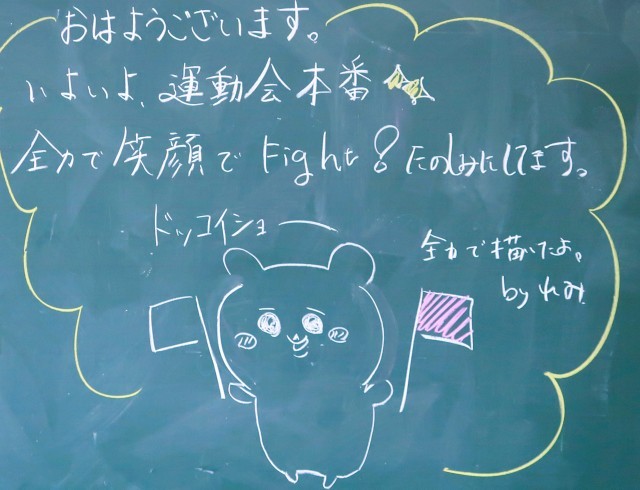 おはようございます。
いよいよ、運動会本番
全力で笑顔でFight! たのしみにしてます。
ドッコイショー
全力で描いたよ。
by れみ